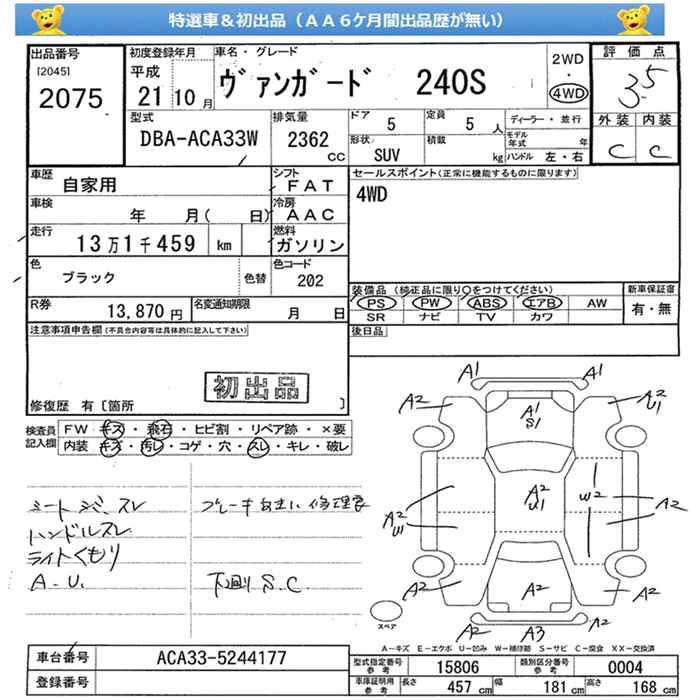 特選車＆初出品（ＡＡ６ケ月間出品歴が無い）
出品番号
[2045]
2075
初度登録年月
平成
21年10月
車名・グレード
ヴァンガード 240S
2WD
・
4WD
評価点
3.5
外装 内装
C C
型式
DBA-ACA33W
排気量
2362
CC
ドア
5
定員
5
人
形状
SUV
積載
kg
ディーラー・並行
モデル
年式
年
ハンドル 左・右
車歴
自家用
シフト
FAT
車検
年 月( 日)
冷房
AAC
走行
13万1千459 km
燃料
ガソリン
色
ブラック
色替
色コード
202
R券
13,870円
名変通知期限
月 日
セールスポイント(正常に機能するものに限ります)
4WD
装備品(純正品に限り○をつけてください)
PS PW ABS エアB AW
SR ナビ TV カワ
新車保証書
有・無
後日品
注意事項申告欄(不具合内容等は具体的に記入して下さい)
初出品
修復歴 有〔箇所 〕
検査員
記入欄
FW キズ・飛石・ヒビ割・リペア跡・×要
内装 キズ・汚レ・コゲ・穴・スレ・キレ・破レ
ハンドルスレ
ライトくもり
A.U.
下廻りS.C.
A1 A1
A2 A2
U1
A1
S1
A2
U1
A2
U1
W2
A2
A2 A2
A2
A2 A3 A2
スペア
A－キズ E－エクボ U－凹み W－補修跡 S－サビ C－腐食 XX－交換済
車台番号
ACA33-5244177
登録番号
型式指定番号
参考
15806
類別区分番号
参考
0004
車庫証明用
参考
長さ
457cm
幅
181cm
高さ
168cm